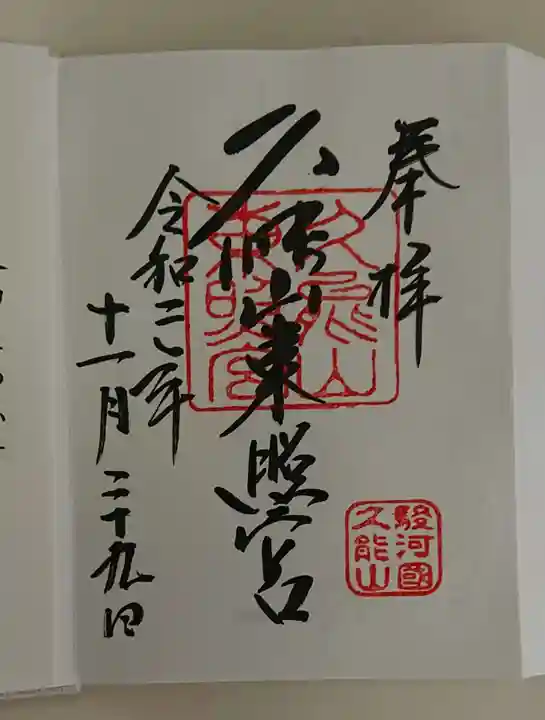 奉拝
久能山東照宮
令和三年
十一月二十九日
久能山東照宮
駿河國
久能山